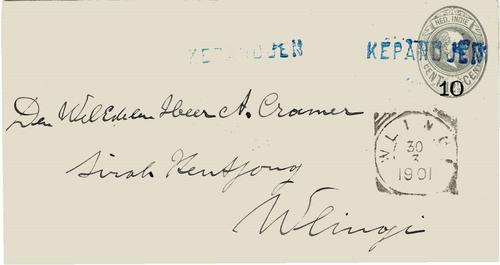 KEPANDJEN KEPANDJEN
NED. INDIE
CENT CENT
10
Den WelEdelen Heer A. Cramer
WLINGI
30
3
1901
Sirah Kentjong
Wlingi